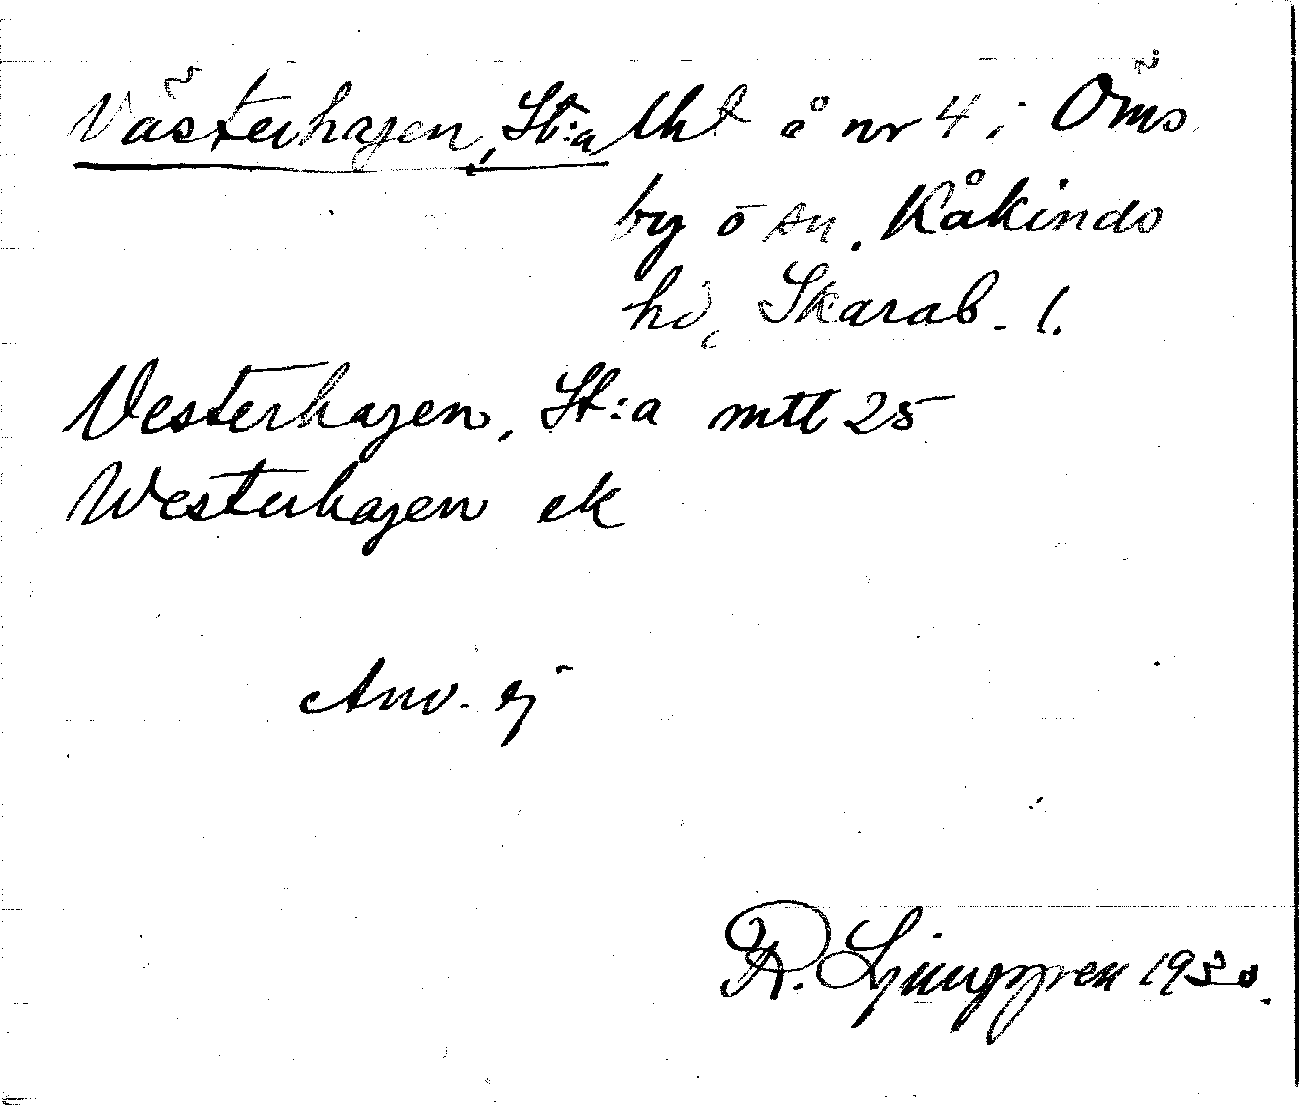 Västerhagen, St:a lht å nr 4 i Öms
by ö sn. Kåkinds
hd, Skarab. l.
Vesterhagen, St:a mtl 25
Westerhagen ek
Anv. ej
R. Ljunggren 1930.